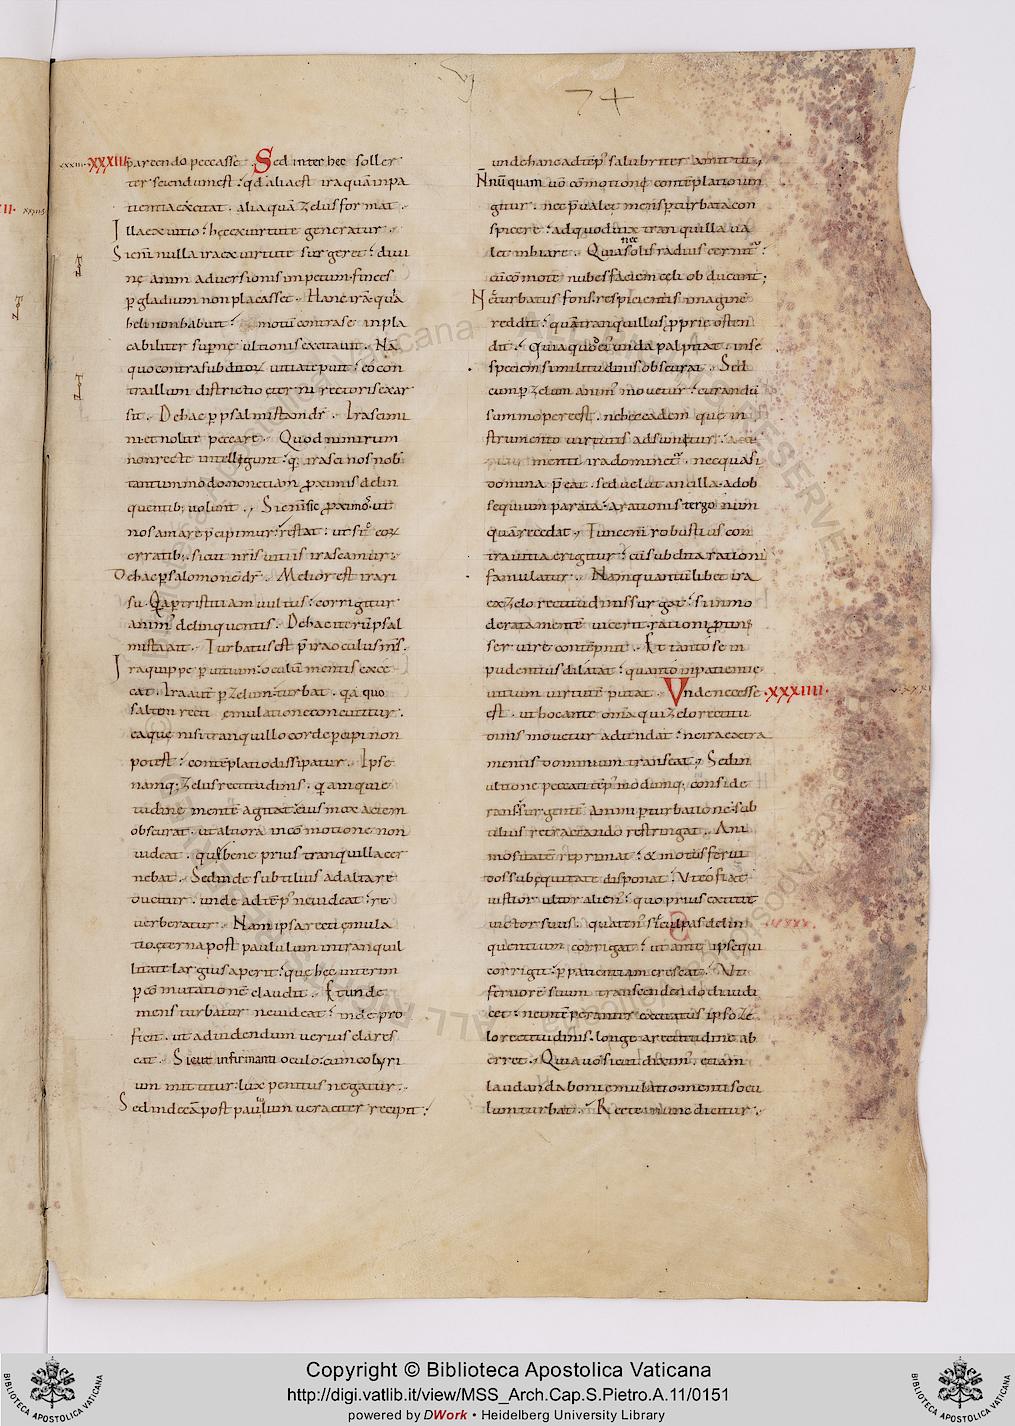 74
XXXIII
parcendo peccasse. Sed inter hęc soller
ter sciendum est: qđ alia est ira quā inpa
tientia excitat. alia quā zelus format.
Illa ex uitio: hęc ex uirtute generatur.
Si enī nulla ira ex uirtute surgeret: diui
nę anim aduersionis impetum finees
p̄ gladium non placasset. Hanc irā quia
heli non habuit: motū contra se inpla
cabiliter supernę ultionis excitauit. Na
quo contra subditoꝝ uitia tepuit: eo con
tra illum districtio eterni rectoris exar
sit. De hac p̄ psalmistam dr̄. Irascimi
ni et nolite peccare. Quod nimirum
non recte intellegunt: q irasci nos nob̄
tantummodo. non etiam proximis delin
quentib; uolunt. Si enī sic proximos ut
nos amare p̄cipimur: restat: ut sic eoꝝ
erratib; sicut nr̄is uitiis irascamur.
De hac p̄ salomonē dr̄. Melior est ira ri
su. Quia p̄ tristitiam uultus: corrigitur
animus delinquentis. De hac iterū psal
mista ait. Turbatus est p̄ ira oculus m̄s.
Ira quippe p̄ uitium: oculū mentis excę
cat. Ira autē p̄ zelum: turbat. qa quo
saltem recti ęmulatione concutitur.
ea quę nisi tranquillo corde p̄cipi non
potest: contēplatio dissipatur. Ipse
namq; zelus rectitudinis. qa inquie
tudine mentē agitat: eius mox aciem
obscurat. ut altiora in cōmotione non
uideat. quę bene prius tranquilla cer
nebat. Sed inde subtilius ad alta re
ducitur. unde ad tēp' ne uideat: re
uerberatur. Nam ipsa recti ęmula
tio ęterna post paululum in tranquil
litate largius aperit: quę hęc interim
p̄ cōmutationē claudit. Et unde
mens turbatur ne uideat: inde pro
ficit. ut ad uidendum uerius clares
cat. Sicut infirmanti oculo: cum colyri
um mittitur: lux penitus negatur.
Sed inde eā post paululum ueraciter recipit:
unde hanc ad tēp' salubriter amittit.
Nūquam uō cōmotioni contēplatio iun
gitur. nec p̄ualet mens p̄turbata con
spicere: ad quod uix tranquilla ua
let inhiare. Quia nec solis radius cernit':
cū cōmotę nubes faciem cęli obducunt;
Nec turbatus fons respicientis imaginē
reddit: quā tranquillus proprie osten
dit. Quia quo eius unda palpitat. in se
speciem similitudinis obscurat. Sed
cum p̄ zelum animus mouetur: curandū
summopere est. ne hęc eadem quę in
strumento uirtutis adsumitur.
menti ira dominet'. nec quasi
domina p̄eat. sed uelut ancilla ad ob
sequium parata: a rationis tergo num
quā recedat. Tunc enī robustius con
tra uitia erigitur: cū subdita rationi
famulatur. Nam quantūlibet ira
ex zelo rectitudinis surgat: si inmo
derata mentē uicerit. rationi protin'
seruire contēpnit. Et tanto se in
pudentius dilatat: quanto inpatientię
uitium uirtutē putat. Unde necesse XXXIIII.
est. ut hoc ante omīa qui zelo rectitu
dinis mouetur adtendat: ne ira extra
mentis dominium transeat. Sed in
ultione peccati tēp' modumq; conside
rans: surgentē animi p̄turbationē sub
tilius retractando restringat. Ani
mositatē reprimat: & motus ferui
dos sub ęquitate disponat. Ut eo fiat
iustior ultor alien': quo prius extitit
uictor suus. quatenus sic culpas delin
quentium corrigat: ut ante ipse qui
corrigit: p̄ patientiam crescat. Ut
feruorē suum transcendendo diiudi
cet: ne intēperanter excitatus ipso ze
lo rectitudinis. longe a rectitudine ab
erret. Quia uō sicut diximus. etiam
laudanda boni ęmulatio. mentis ocu
lum turbat. Recte nunc dicitur.
Copyright © Biblioteca Apostolica Vaticana
http://digi.vatlib.it/view/MSS_Arch.Cap.S.Pietro.A.11/0151
powered by DWork • Heidelberg University Library
BIBLIOTECA APOSTOLICA VATICANA
BIBLIOTECA APOSTOLICA VATICANA